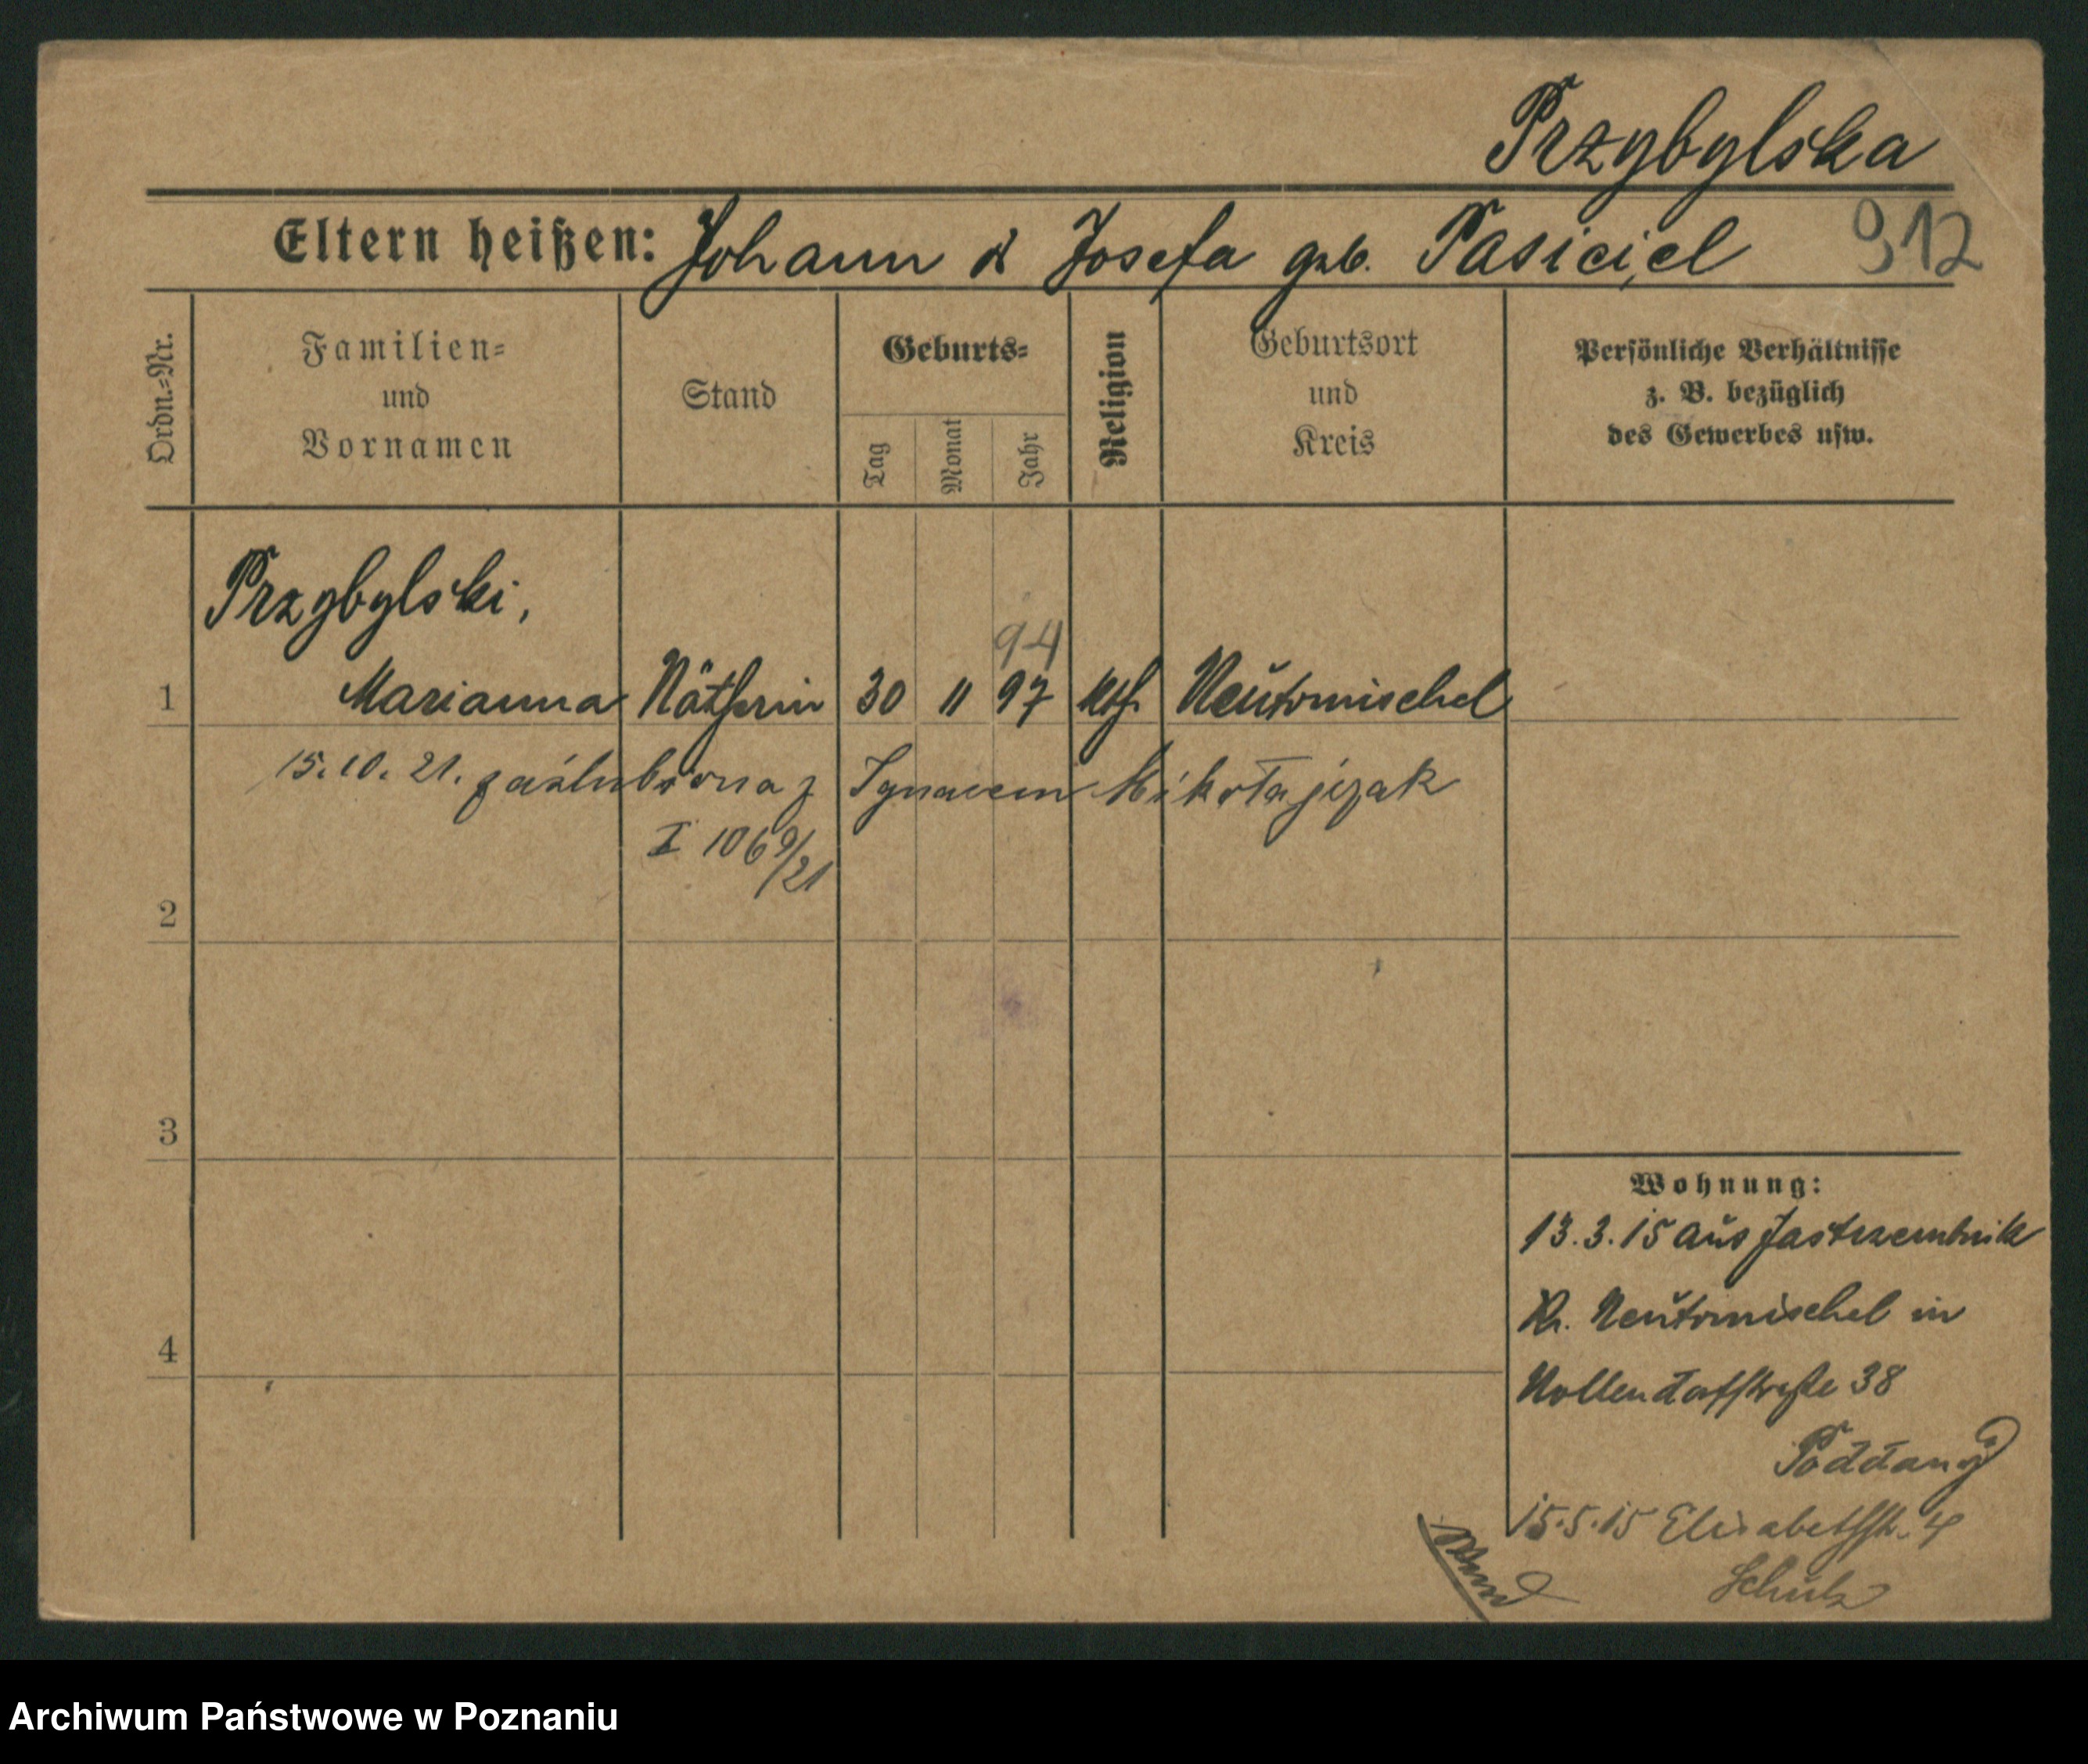 Przybylska
Eltern heißen: Johann & Josefa geb. Pasiciel 912
Ordn.-Nr.
Familien-
und
Vornamen
Stand
Geburts-
Tag
Monat
Jahr
Religion
Geburtsort
und
Kreis
Persönliche Verhältnisse
z. B. bezüglich
des Gewerbes usw.
Przybylski,
94
1 Marianna Nätherin 30 11 97 kth. Neutomischel
15.10.21. zaślubiona z Ignacem Mikołajczak
I 1069/21
2
3
4
Wohnung:
13.3.15 aus Jastrzembnik
Kr. Neutomischel in
Nollendorfstraße 38
Poddany
15.5.15 Elisabethstr. 4
Schulz
Archiwum Państwowe w Poznaniu